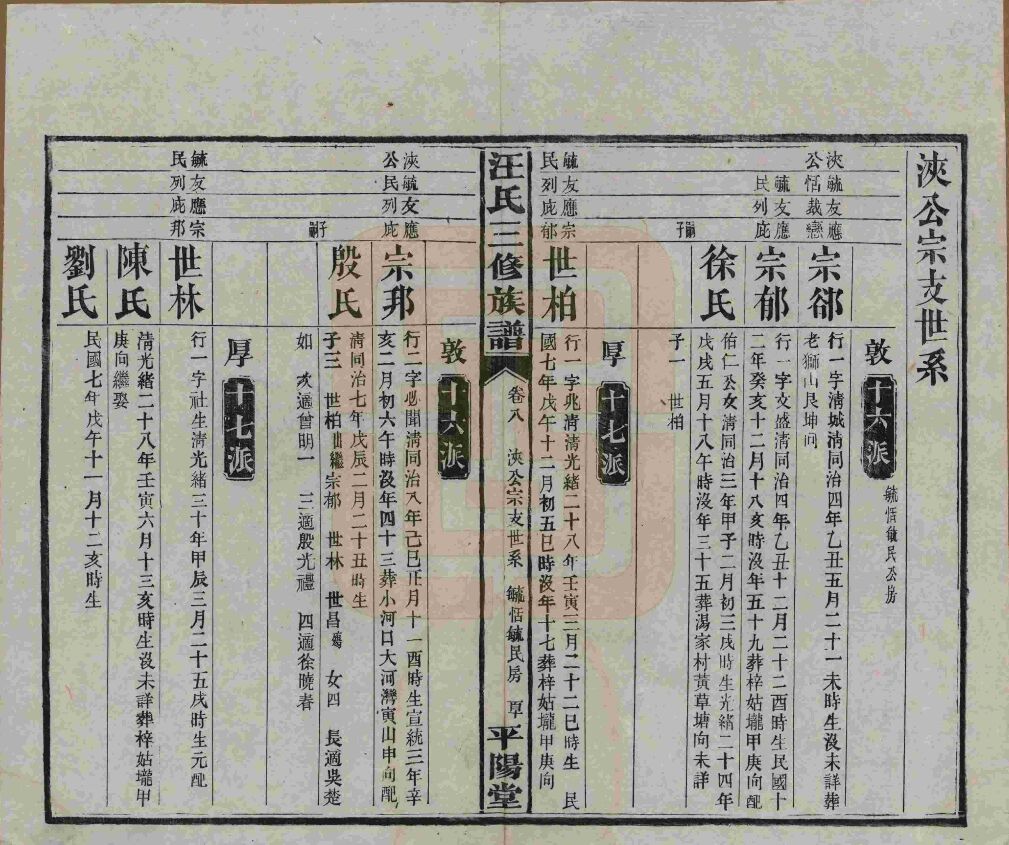 浹公宗支世系
敦 十六派 毓恬毓民公房
浹公
毓恬
友裁
應戀
宗郤
行一字清城清同治四年乙丑五月二十一未時生沒未詳葬
老獅山艮坤向
毓民
友列
應庇
宗郁
行一字文盛清同治四年乙丑十二月二十二酉時生民國十
二年癸亥十二月十八亥時沒年五十九葬梓姑壠甲庚向配
徐氏
佑仁公女清同治三年甲子二月初三戌時生光緒二十四年
戊戌五月十八午時沒年三十五葬湯家村黃草塘向未詳
嗣子
子一 世柏
厚 十七派
毓民
友列
應庇
宗郁
世柏
行一字兆清清光緒二十八年壬寅三月二十二巳時生 民
國七年戊午十二月初五巳時沒年十七葬梓姑壠甲庚向
汪氏三修族譜 卷八 浹公宗支世系 毓恬毓民房 厚 平陽堂
敦 十六派
浹公
毓民
友列
應庇
宗邦
行二字必聞清同治八年己巳正月十一酉時生宣統三年辛
亥二月初六午時沒年四十三葬小河口大河灣寅山申向配
殷氏
清同治七年戊辰二月二十丑時生
子三 世柏出繼宗郁 世林 世昌殤 女四 長適吳楚
嗣子
如 次適曾明一 三適殷光禮 四適徐曉春
厚 十七派
毓民
友列
應庇
宗邦
世林
行一字社生清光緒三十年甲辰三月二十五戌時生元配
陳氏
清光緒二十八年壬寅六月十三亥時生沒未詳葬梓姑壠甲
庚向繼娶
劉氏
民國七年戊午十一月十二亥時生